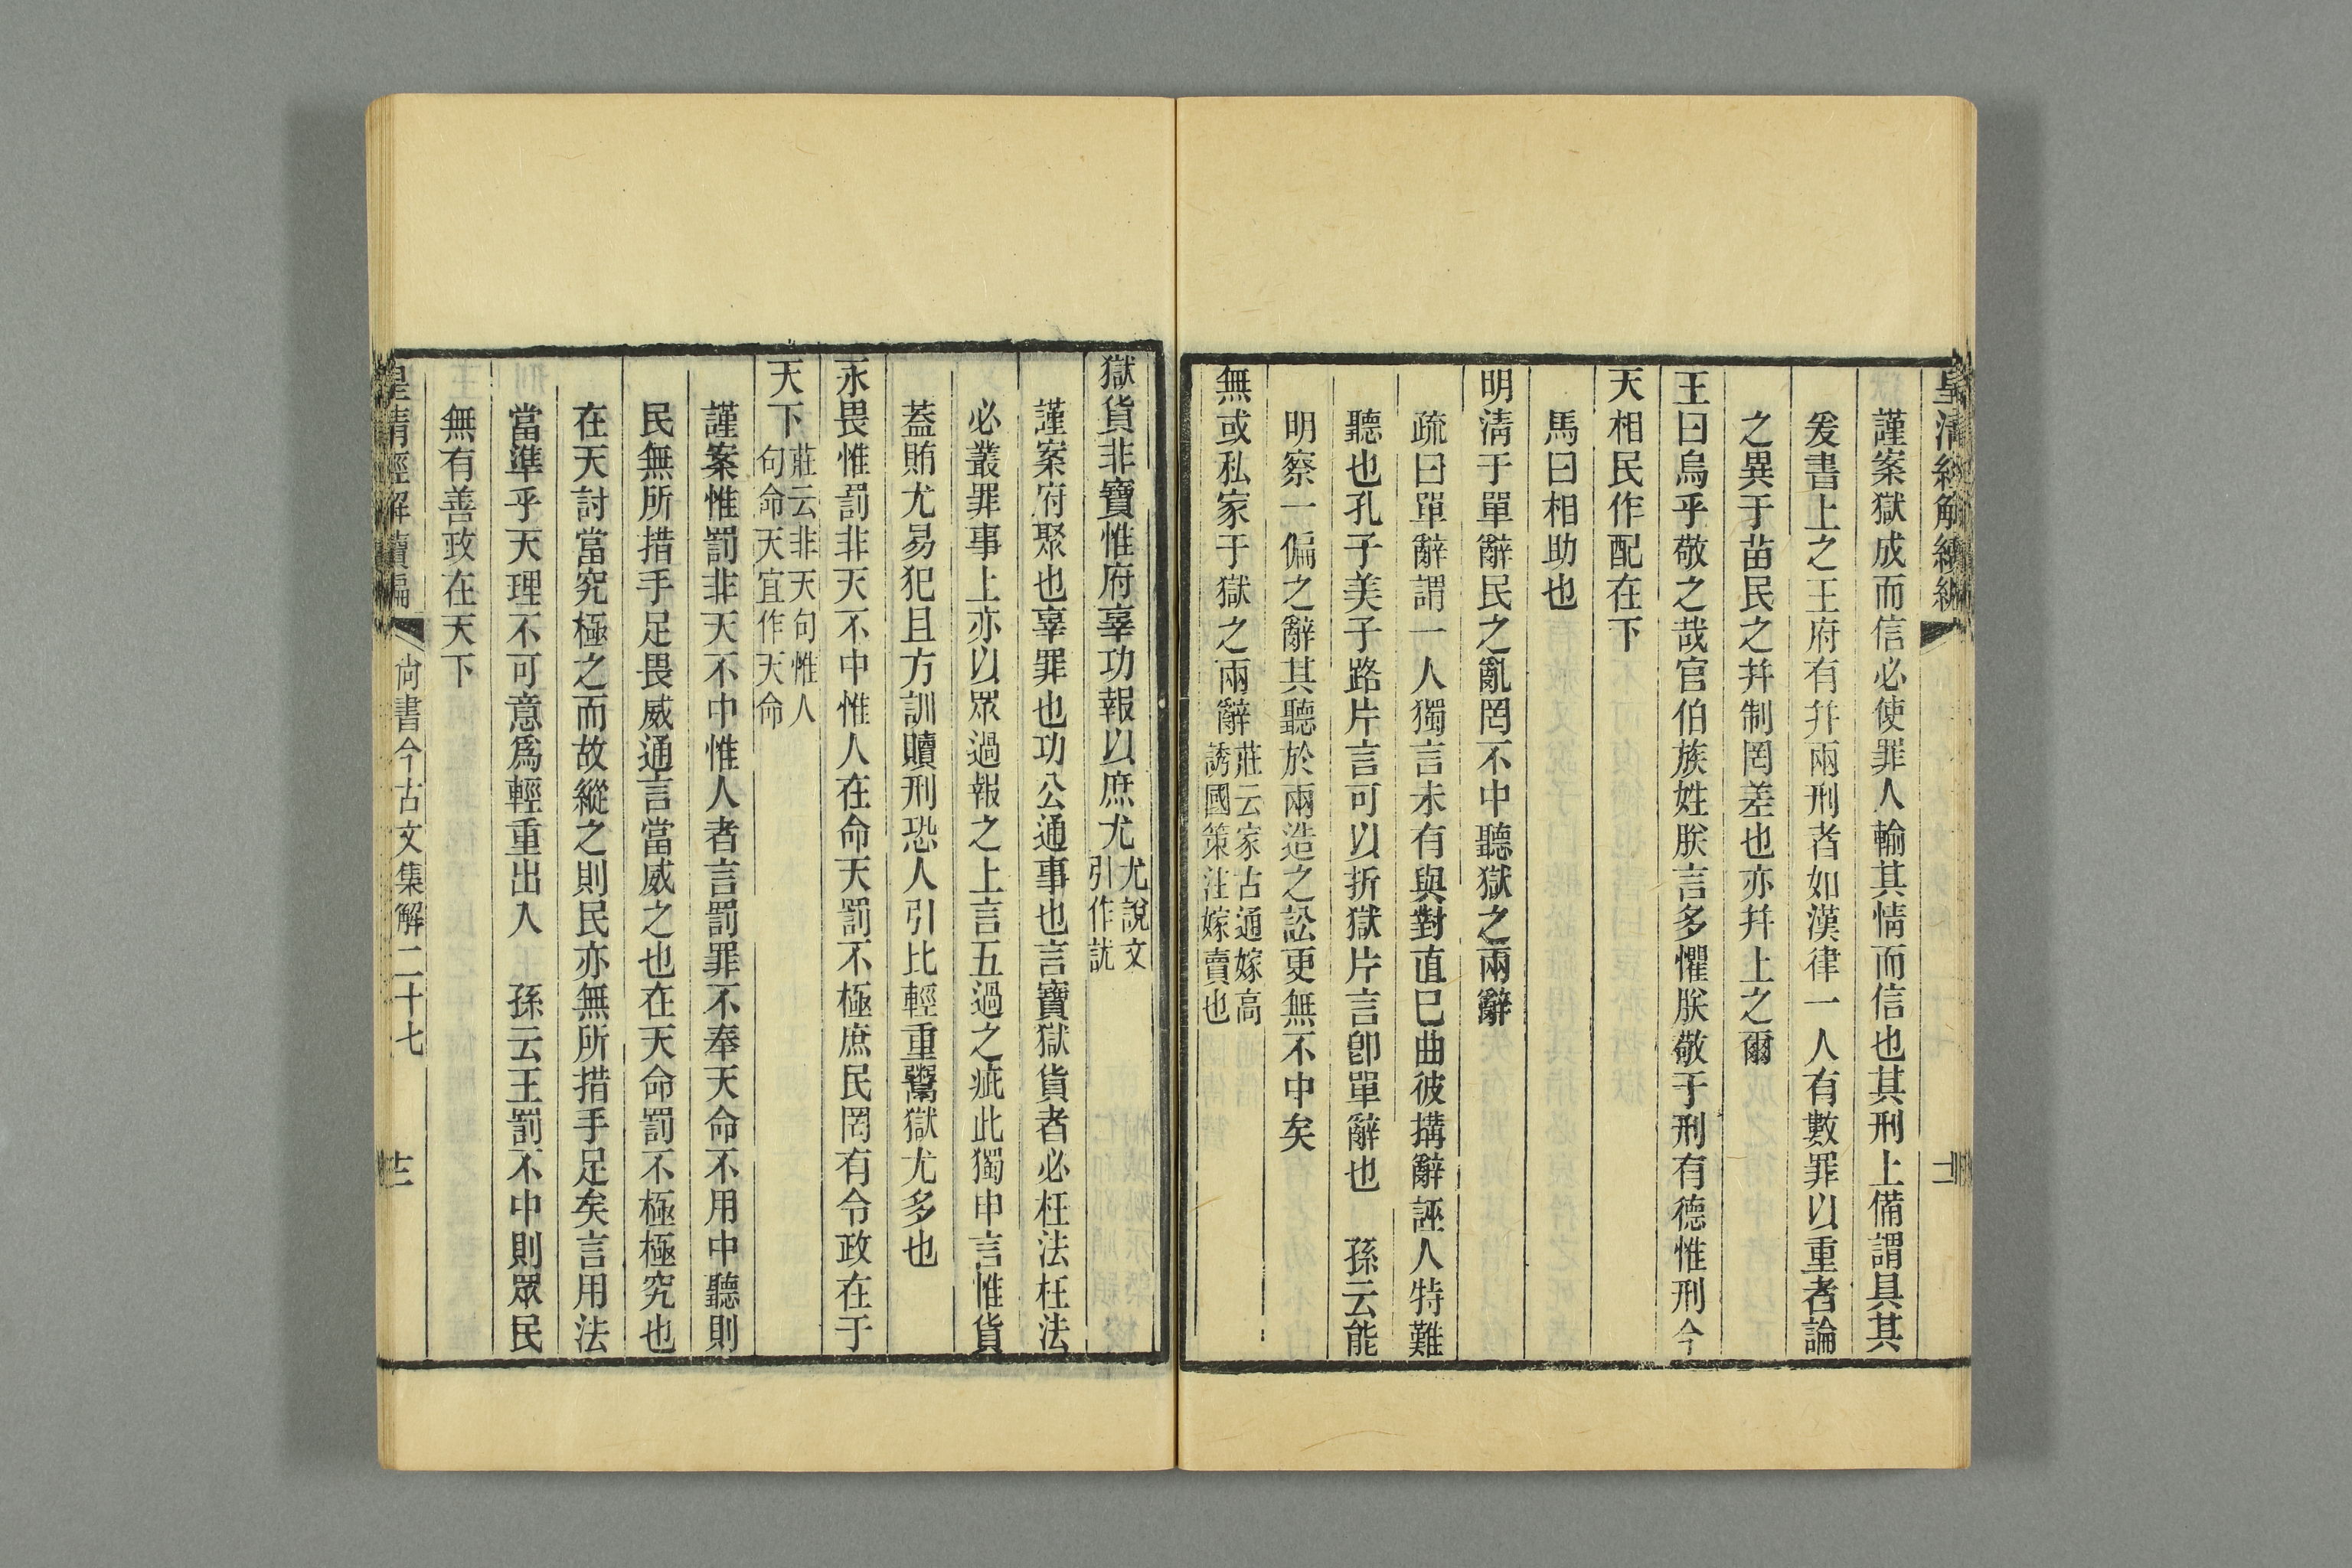 皇清經解續編
謹案獄成而信必使罪人輸其情而信也其刑上備謂具其
爰書上之王府有幷兩刑者如漢律一人有數罪以重者論
之異于苗民之幷制罔差也亦幷上之爾
王曰烏乎敬之哉官伯族姓朕言多懼朕敬于刑有德惟刑今
天相民作配在下
馬曰相助也
明淸于單辭民之亂罔不中聽獄之兩辭
疏曰單辭謂一人獨言未有與對直已曲彼搆辭誣人特難
聽也孔子美子路片言可以折獄片言卽單辭也 孫云能
明察一偏之辭其聽於兩造之訟更無不中矣
無或私家于獄之兩辭
莊云家古通嫁高
誘國策注嫁賣也
獄貨非寶惟府辜功報以庶尤
尤說文
引作訧
謹案府聚也辜罪也功公通事也言寶獄貨者必枉法枉法
必叢罪事上亦以眾過報之上言五過之疵此獨申言惟貨
蓋賄尤易犯且方訓贖刑恐人引比輕重鬻獄尤多也
永畏惟罰非天不中惟人在命天罰不極庶民罔有令政在于
天下
莊云非天句惟人
句命天宜作天命
謹案惟罰非天不中惟人者言罰罪不奉天命不用中聽則
民無所措手足畏威通言當威之也在天命罰不極極究也
在天討當究極之而故縱之則民亦無所措手足矣言用法
當準乎天理不可意爲輕重出入 孫云王罰不中則眾民
無有善政在天下
皇淸經解續編
尚書今古文集解二十七
十二